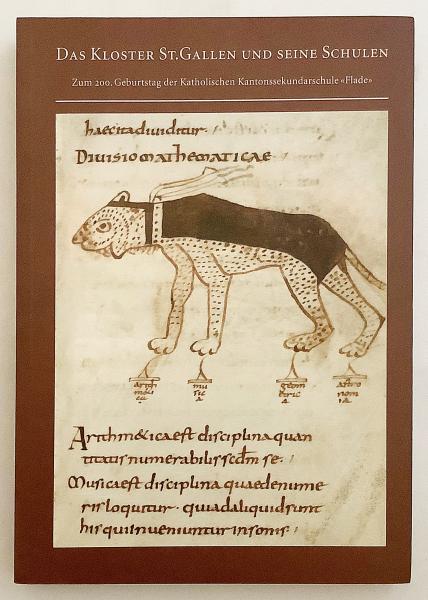 DAS KLOSTER ST.GALLEN UND SEINE SCHULEN
Zum 200. Geburtstag der Katholischen Kantonssekundarschule «Flade»
haec ita dividitur.
DIVISIO MATHEMATICAE
arith
meti
ca
mu
sic
a
geom
etric
a
astro
nom
ia
Arithm&ica est disciplina quan
titatis numerabilis scdm se.
Musica est disciplina quae de nume
ris loquitur. qui ad aliquid sunt
his qui inveniuntur in sonis.